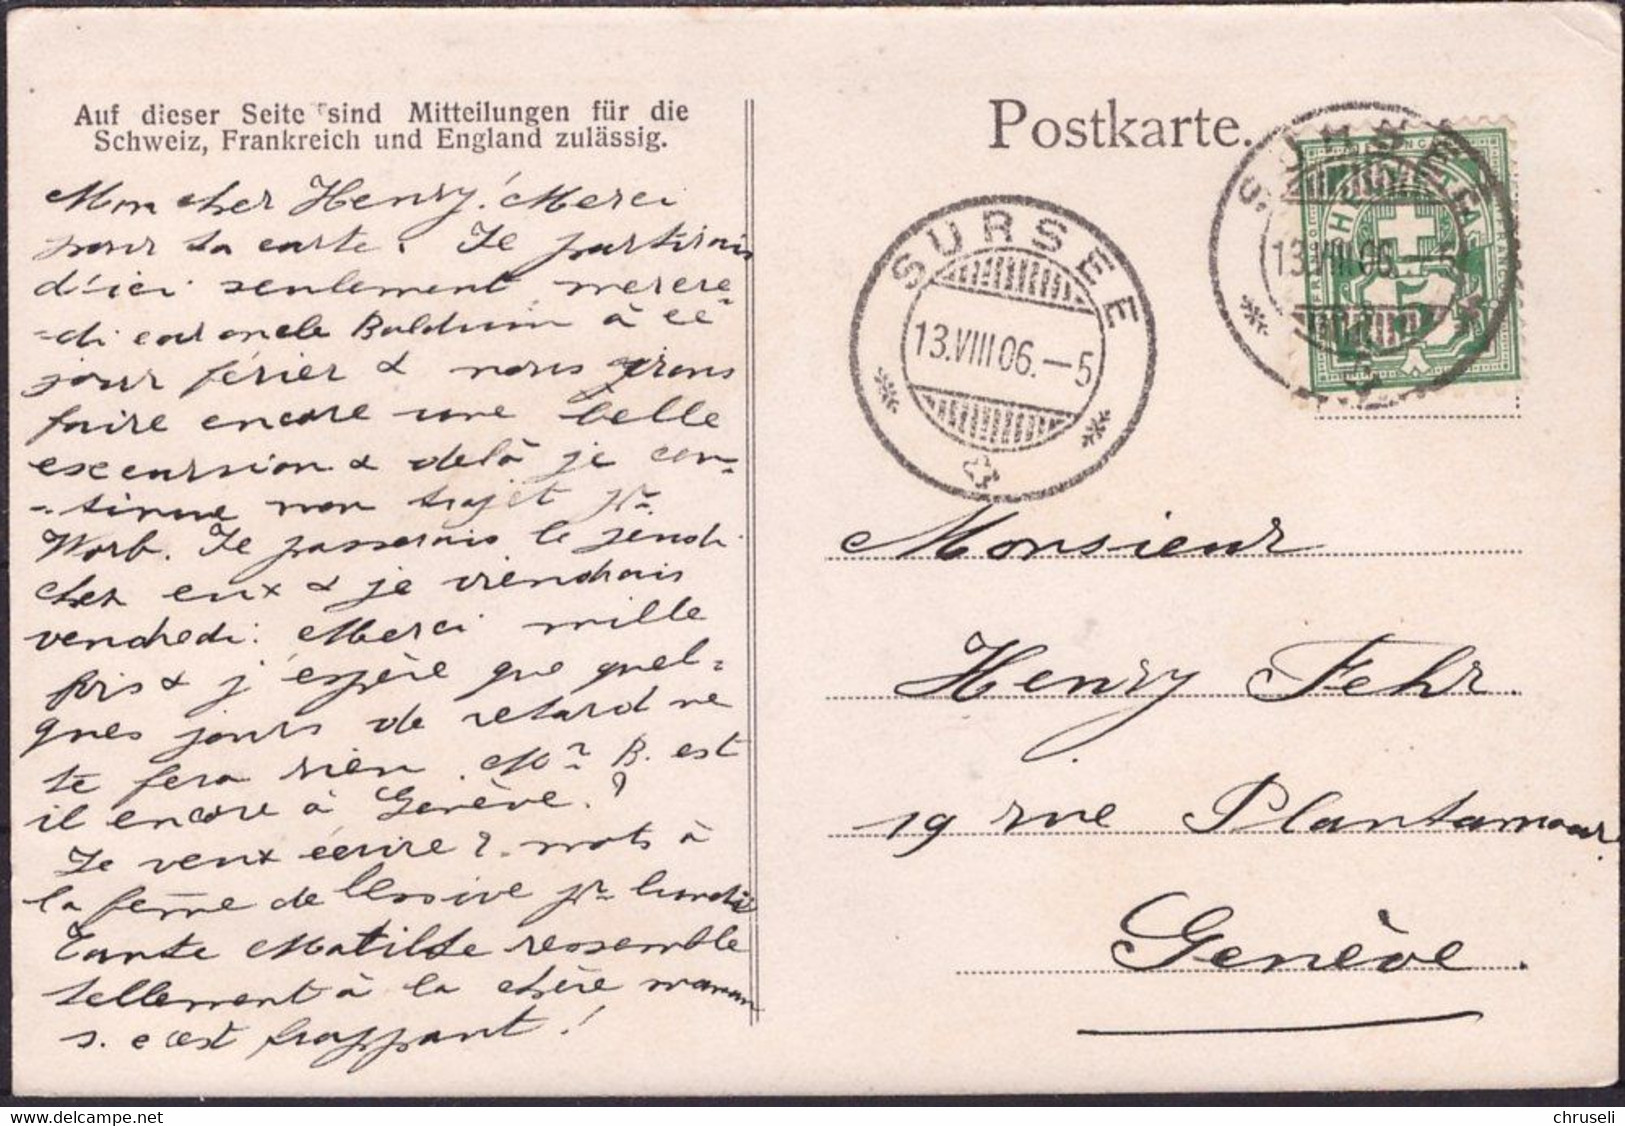 Auf dieser Seite sind Mitteilungen für die
Schweiz, Frankreich und England zulässig.
Postkarte.
SURSEE
13.VIII 06.—5
SURSEE
13.VIII 06.—5
HELVETIA
FRANCO
5
Mon cher Henry! Merci
pour ta carte. Je partirais
d'ici seulement mercre=
=di car oncle Balduin à ce
jour férier & nous irons
faire encore une belle
excursion & delà je con=
=tinue mon trajet pr.
Worb. Je passerais le jeudi
chez eux & je viendrais
vendredi. Merci mille
fois & j'espère que quel=
ques jours de retard ne
te fera rien. Mr B. est
il encore à Genève?
Je veux écrire 2. mots à
la femme de lessive pr. lundi
Tante Matilde ressemble
tellement à la chère maman
s. c'est frappant!
Monsieur
Henry Fehr.
19 rue Plantamour
Genève.
www.delcampe.net
chruseli